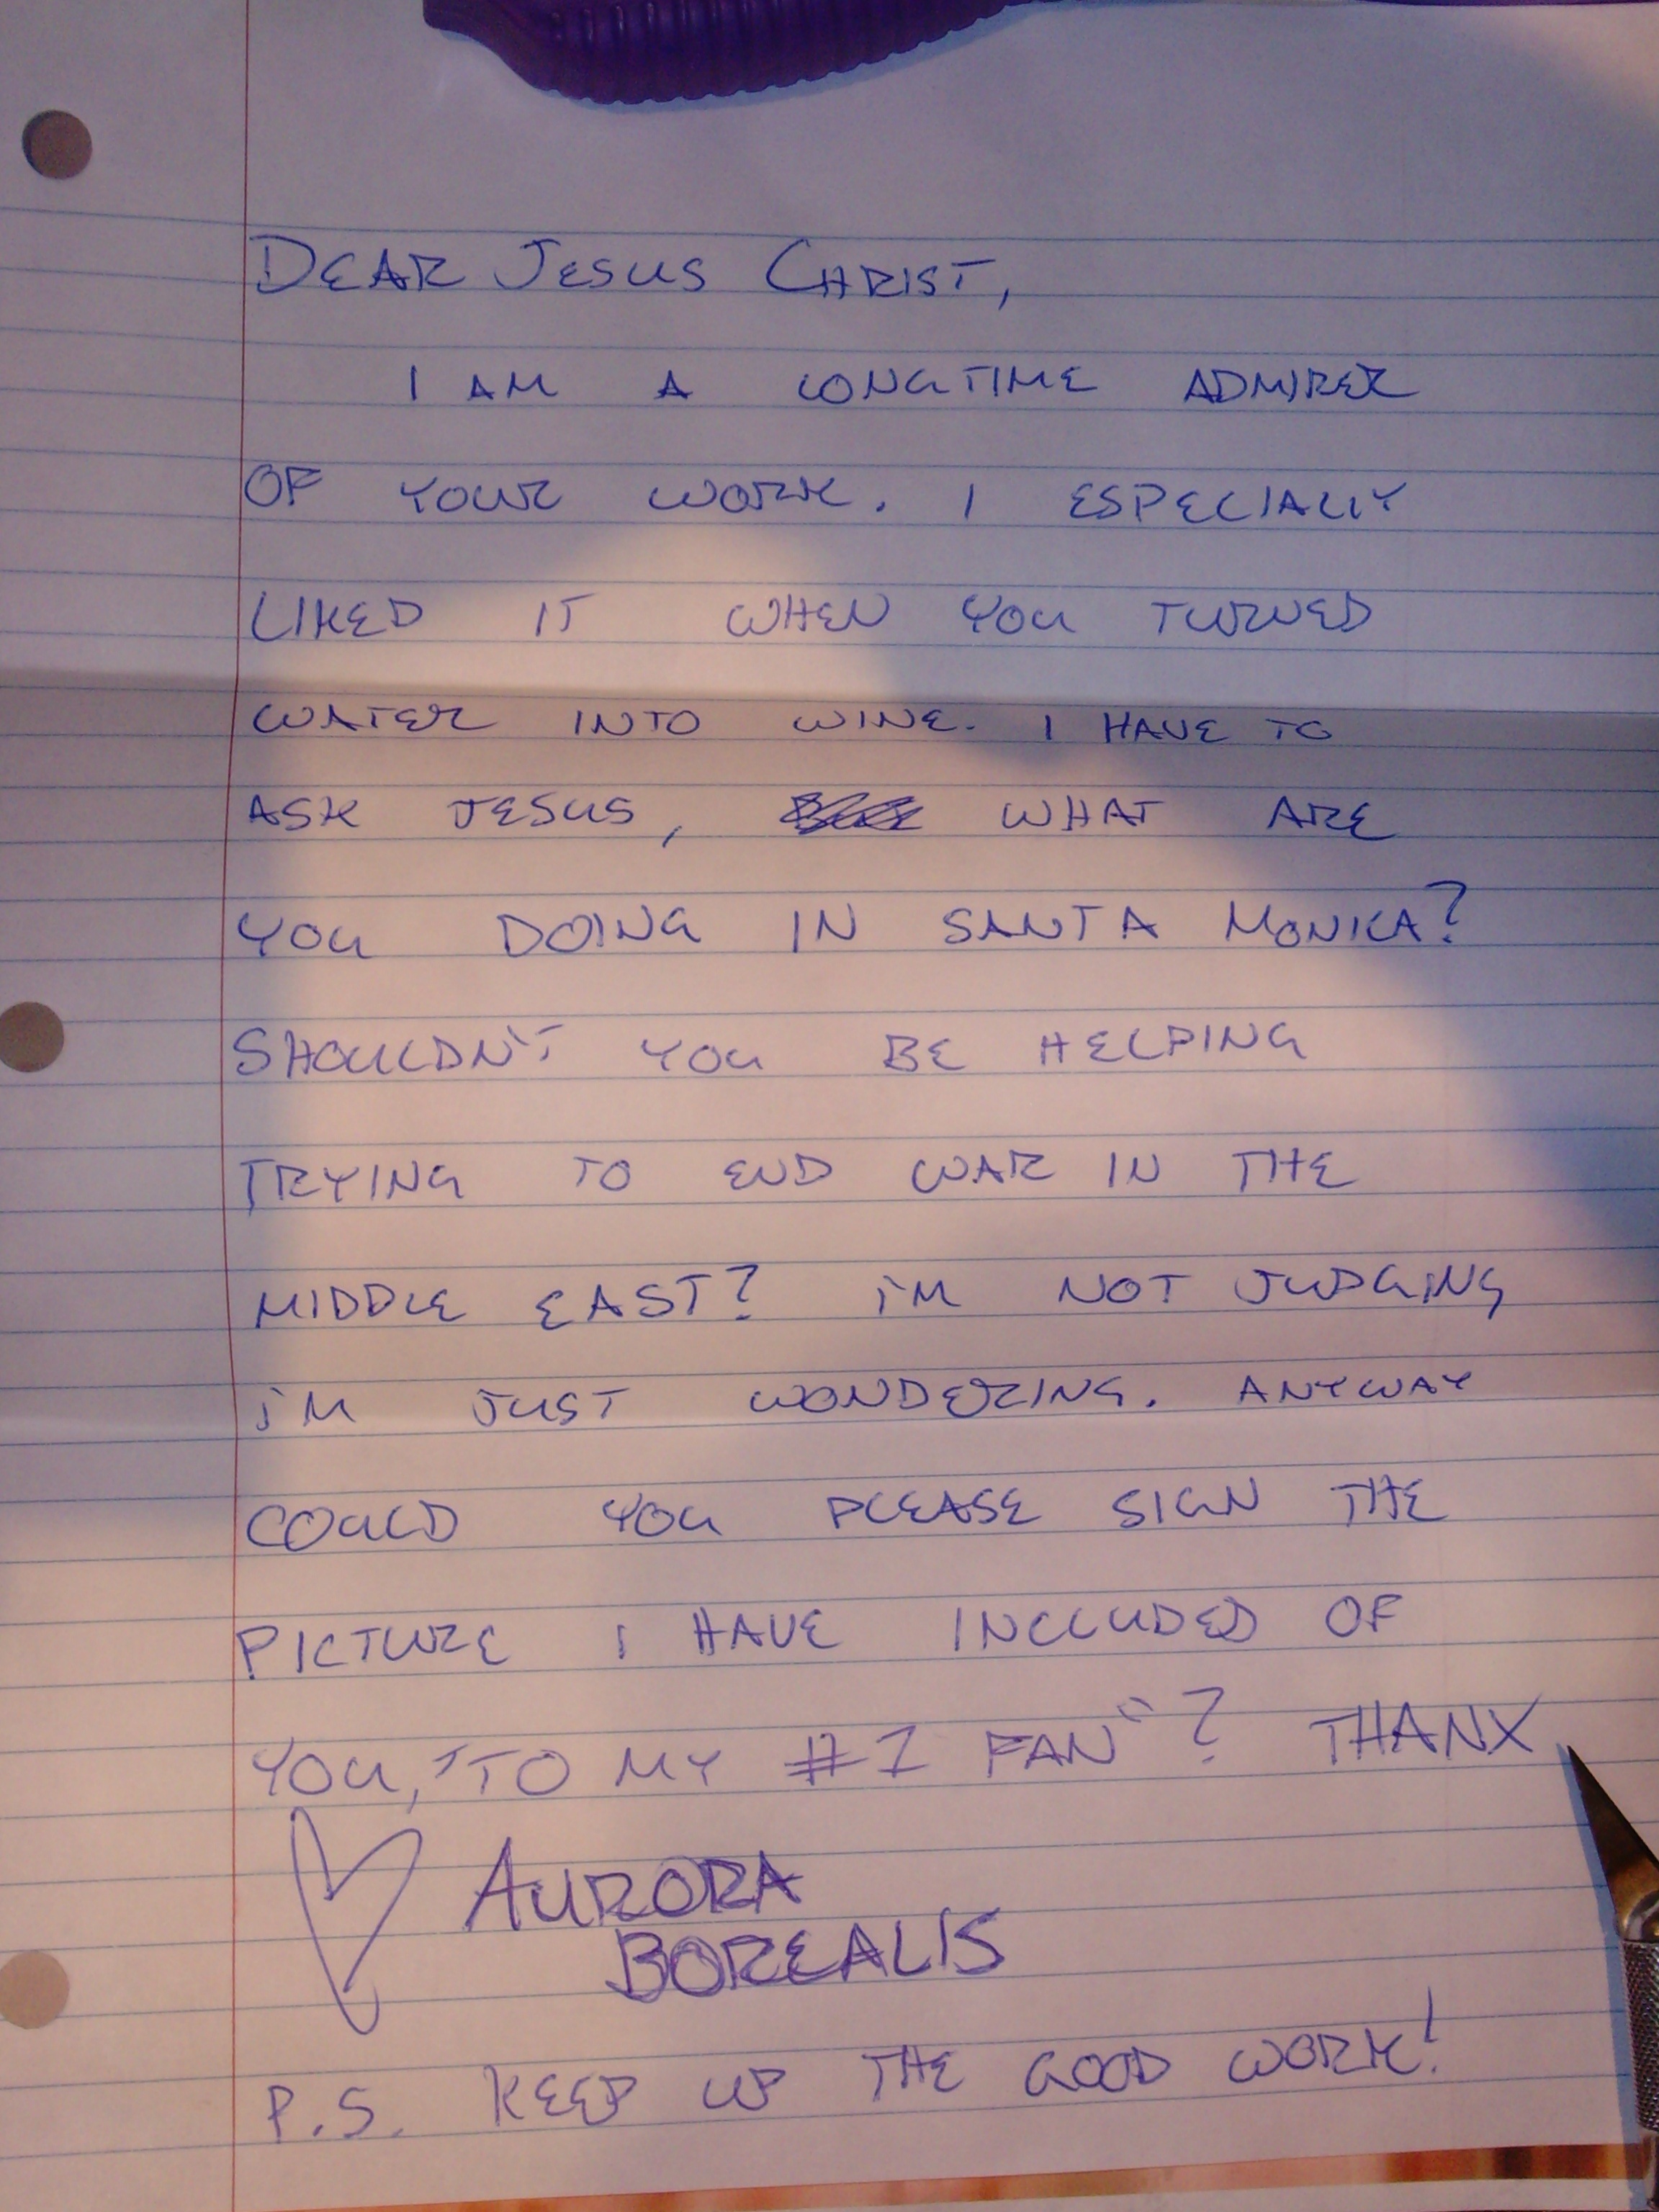 DEAR JESUS CHRIST,
I AM A LONGTIME ADMIRER
OF YOUR WORK. I ESPECIALLY
LIKED IT WHEN YOU TURNED
WATER INTO WINE. I HAVE TO
ASK JESUS, WHAT ARE
YOU DOING IN SANTA MONICA?
SHOULDN'T YOU BE HELPING
TRYING TO END WAR IN THE
MIDDLE EAST? I'M NOT JUDGING
I'M JUST WONDERING. ANYWAY
COULD YOU PLEASE SIGN THE
PICTURE I HAVE INCLUDED OF
YOU, "TO MY #1 FAN"? THANX
AURORA
BOREALIS
P.S. KEEP UP THE GOOD WORK!